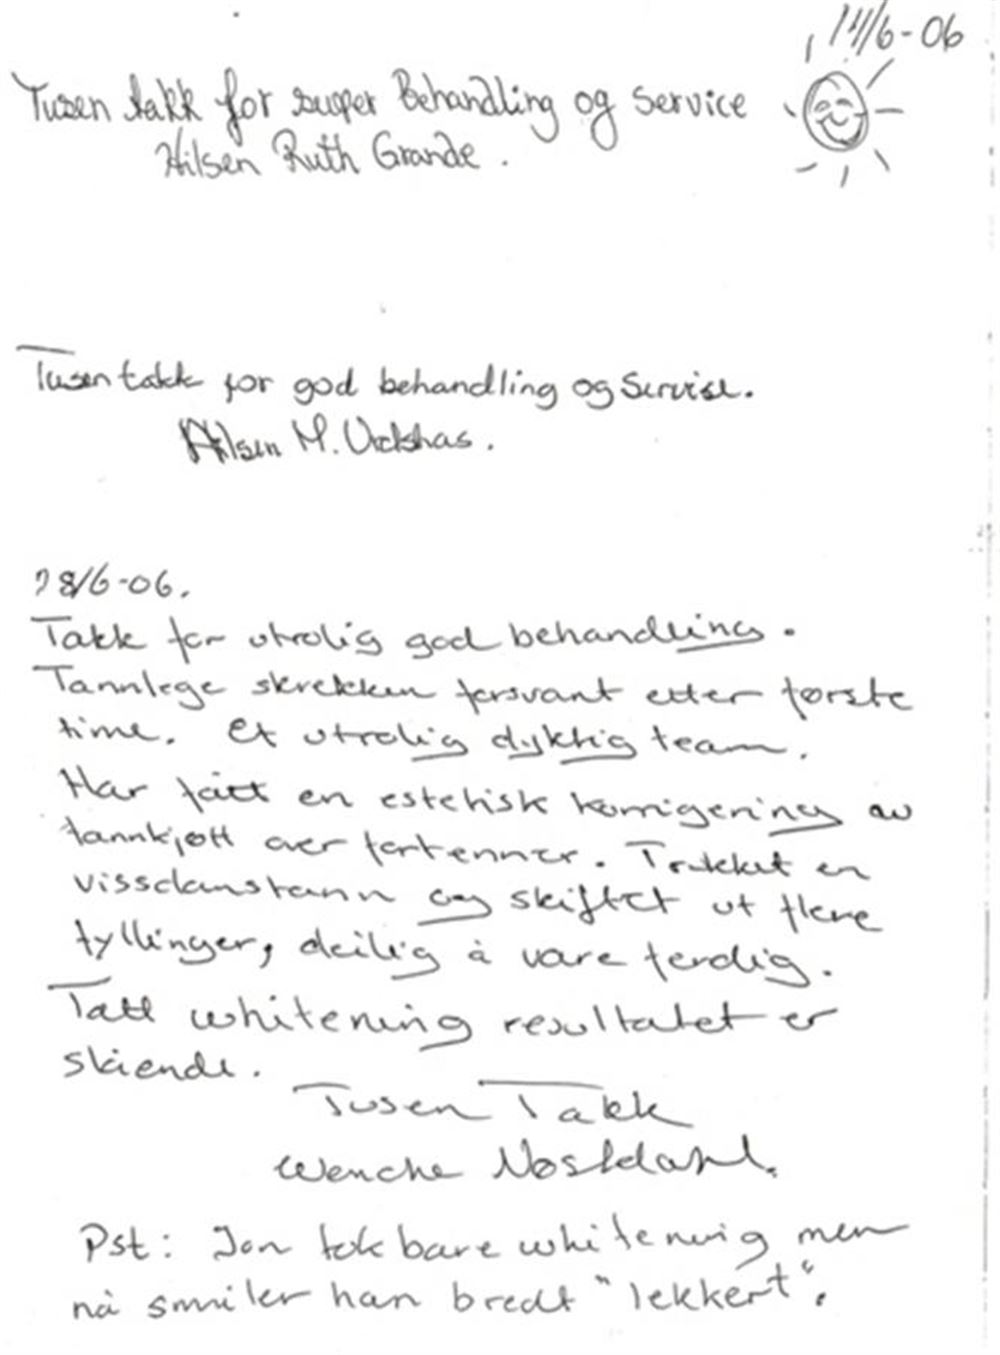 14/6-06
Tusen takk for super Behandling og service
Hilsen Ruth Grande.
Tusen takk for god behandling og Servise.
Hilsen M.
28/6-06.
Takk for utrolig god behandling.
Tannlege skrekken forsvant etter første
time. Et utrolig dyktig team.
Har fått en estetisk korrigering av
tannkjøtt over fortenner. Trekket en
vissdomstann og skiftet ut flere
fyllinger, deilig å være ferdig.
Tatt whitening resultatet er
skiende.
Tusen Takk
Wenche Nøstdahl.
Pst: Jon tok bare whitening men
nå smiler han bredt "lekkert".